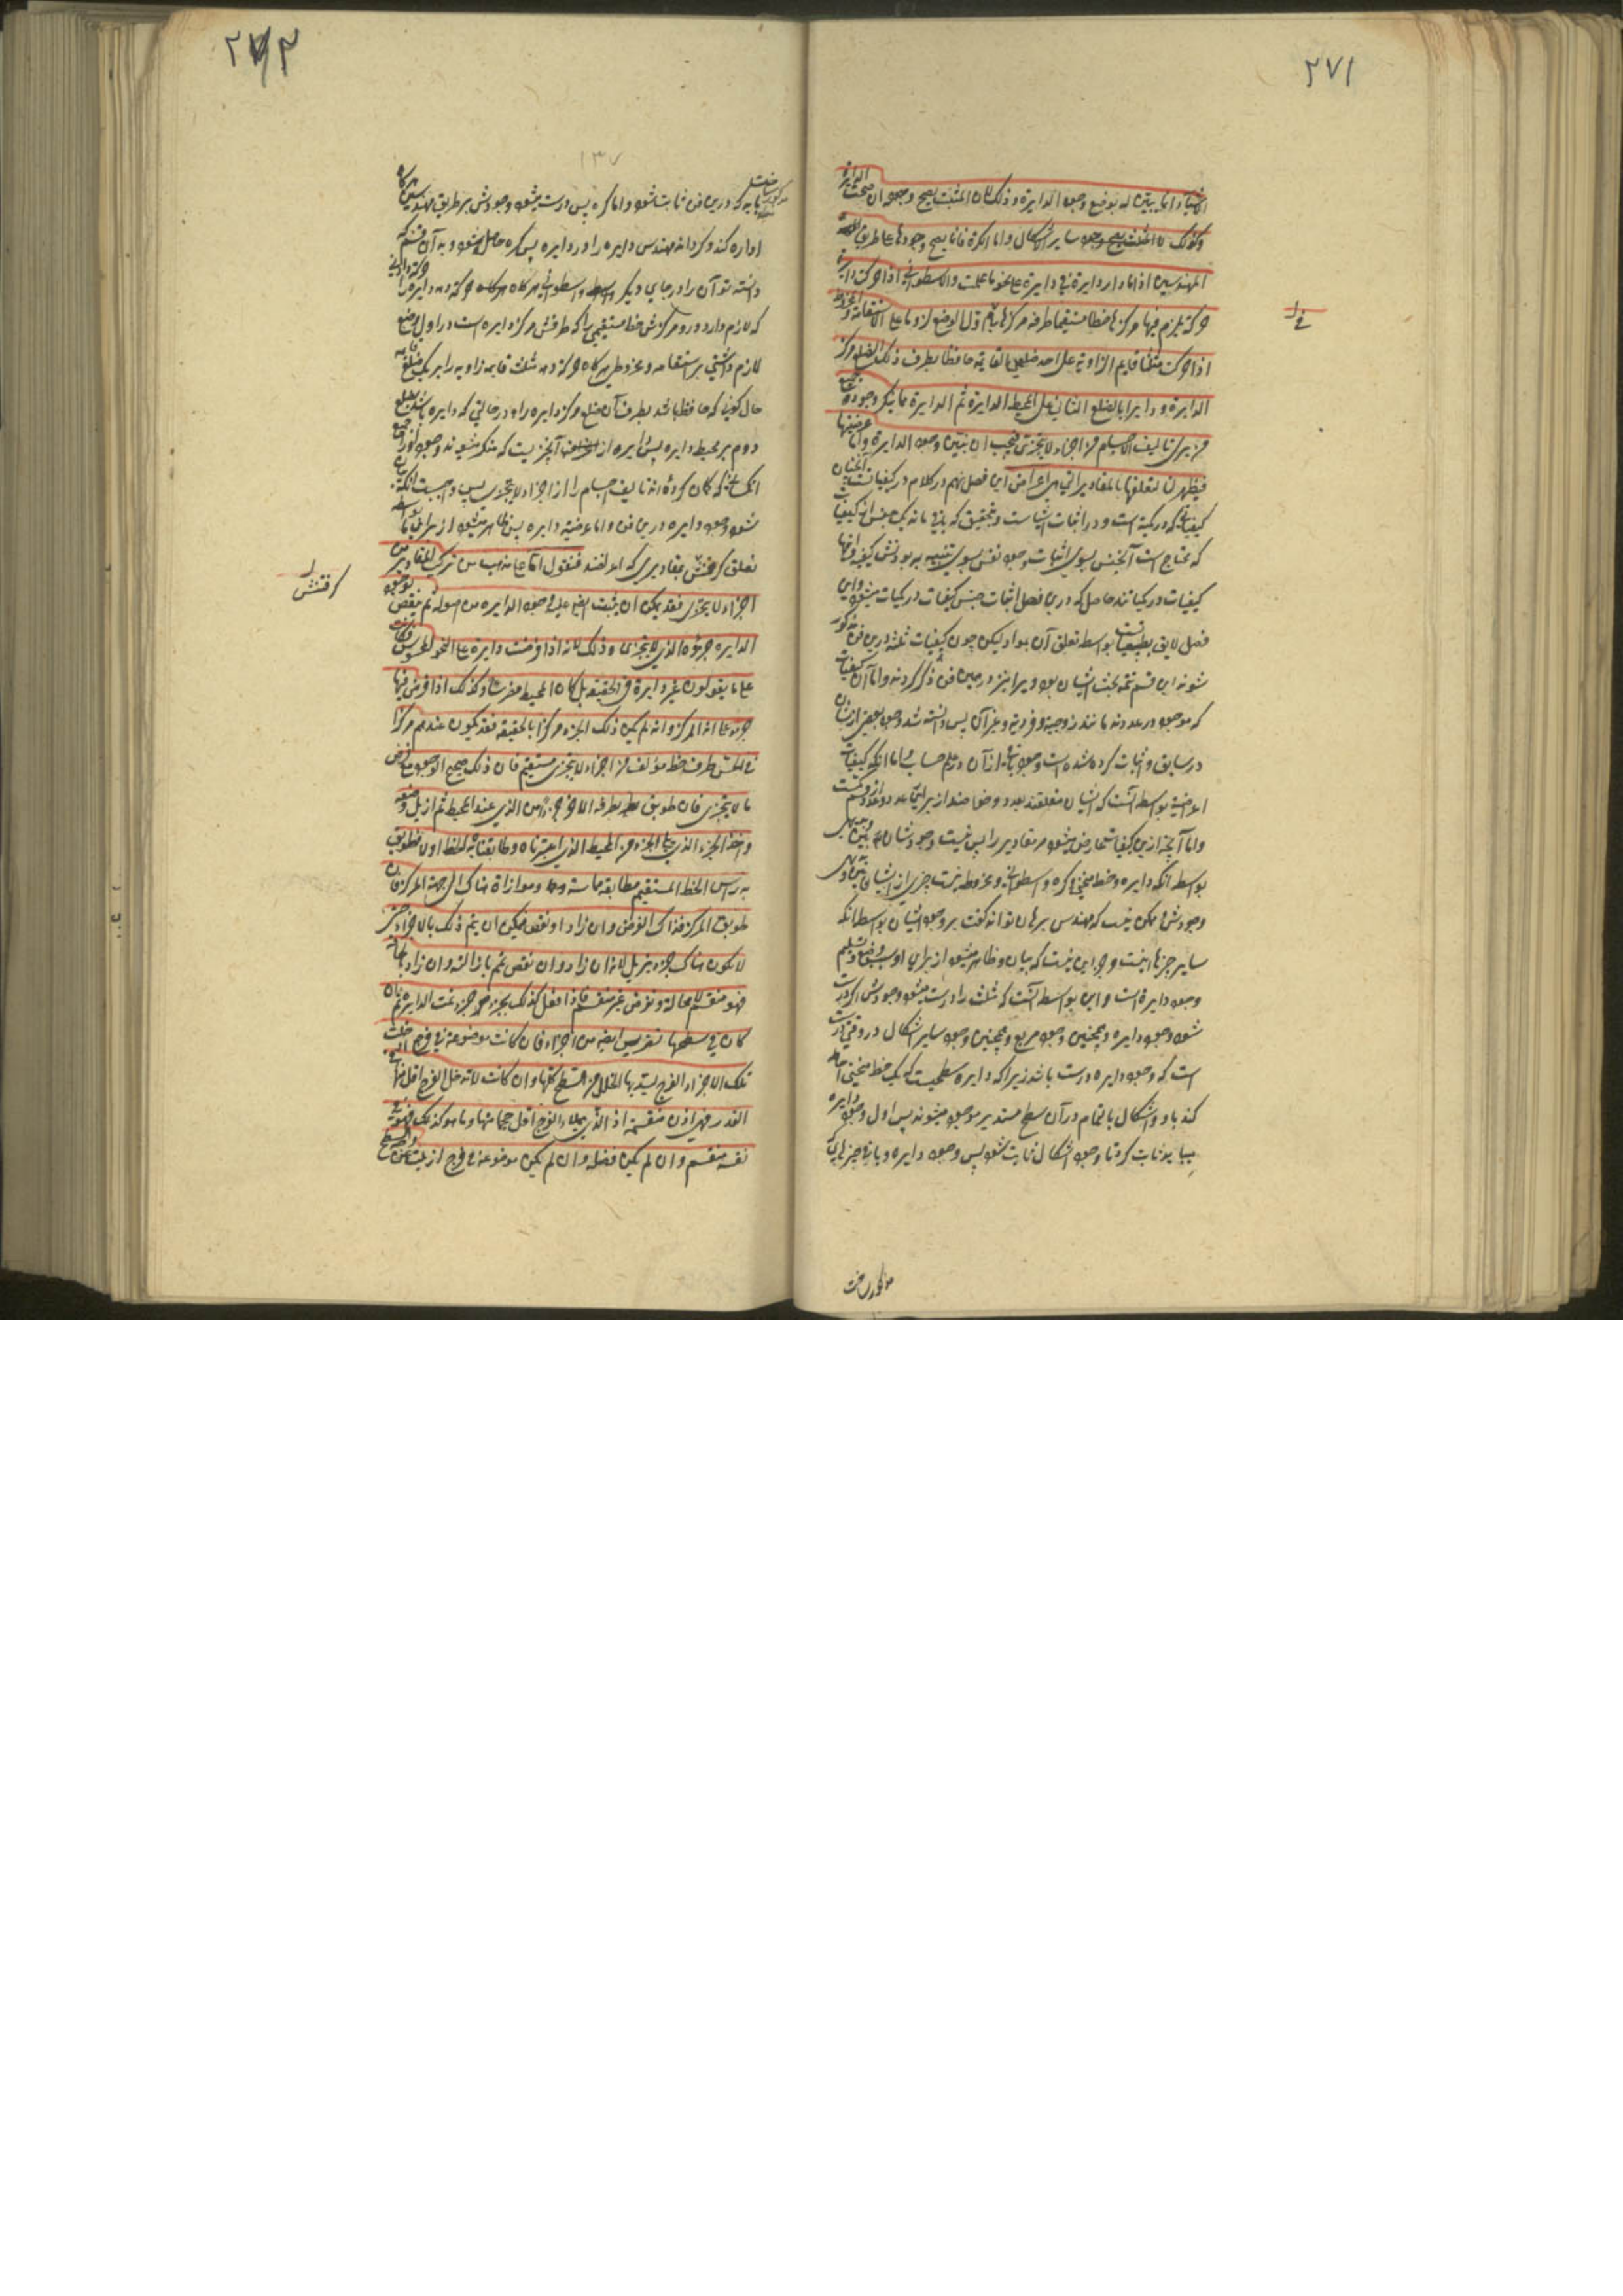 ٢٧١
الاشیاء انما یتبین له بوضع وجود الدایرة و ذلک لان المثلث یصح وجوده ان صحت الدایرة
و کذلک المثلث یصح وجود سایر الاشکال و اما الکرة فانما یصح وجودها علی طریق
المهندسین اذا ادار دایرة فی دایرة علی نحو ما علمت و الاسطوانة اذا حرکت دایرة
حرکة یلزم فیها مرکزها خطا مستقیما طرفه مرکزها فی اول الوضع لزوما علی الاستقامة و المخروط
اذا حرکت مثلثا قایم الزاویة علی احد ضلعی القایمة حافظا بطرف ذلک الضلع مرکز
الدایرة و دایرا بالضلع الثانی علی المحیط الدایرة ثم الدایرة مما ینکر وجوده
من یری تالیف الاجسام من اجزاء لا یتجزی فیجب ان یتبین وجود الدایرة و اما عرضیتها
فیظهر لنا لتعلقها بالمقادیر التی هی اعراض این فصل نهم در کلام در کیفیات
کیفیاتی که در کمیة است و در اثبات ایشانست و تحقیق که باقی مانده یک جنس از کیفیات
که محتاج است آنجنس بسوی اثبات وجود نفس بسوی تنبیه بر بودنش کیفیة و آنها
کیفیات در کمیاتند حاصل که درین فصل اثبات جنس کیفیات در کمیات میشود و این
فصل لایق بطبیعیات بواسطه تعلق آن بمواد لیکن چون کیفیات ثلثه درین فن مذکور
شوند این قسم تتمه بحث ایشان بود و یرا نیز در همین فن ذکر کردند و اما آن کیفیات
که موجود در عددند مانند زوجیة و فردیة و غیر آن پس دانسته شد وجود بعضی ازیشان
در سابق و اثبات کرده شده است وجود باقی از آن در علم حساب و اما آنکه کیفیات
اعراضند بواسطه آنست که ایشان متعلقند بعدد و خواصند از برای عدد و عدد از کمست
و اما آنچه ازین کیفیات عارض میشود مر مقادیر را پس نیست وجودشان بین
بواسطه آنکه دایره و خط منحنی و کره و اسطوانه و مخروط نیست چیزی از ایشان بین
وجودش و ممکن نیست که مهندس برهان تواند گفت بر وجود ایشان بواسطه آنکه
سایر چیزها نیست و جز این نیست که بیان و ظاهر میشود از برای او بسبب وضع و تسلیم
وجود دایرة است و این بواسطه آنست که مثلث را درست میشود وجودش اگر درست
شود وجود دایره و همچنین وجود مربع و همچنین وجود سایر اشکال در وقتی درست
است که وجود دایره درست باشد زیرا که دایره سطحیست که یک خط منحنی احاطه
کند باو و اشکال بالتمام در آن سطح مستدیر موجود میشوند پس اول وجود دایره
میباید ثابت کرد تا وجود اشکال ثابت شود پس وجود دایره و باقی چیزها
مذکور ساخت
٢٧٢
١٣٧
مذکور ساخت
باید که درین فن ثابت شود و اما کره پس درست میشود وجودش بر طریق مهندسین هرگاه
اداره کند و گرداند مهندس دایره را در دایره پس کره حاصل میشود و به آن قسم که
دانسته تو آن را در جای دیگر و اسطوانه هرگاه حرکة دهد دایره را
که لازم دارد در و مرکزش خط مستقیمی را که طرفش مرکز دایره است در اول وضع
لازم داشتنی بر استقامه و مخروط هرگاه حرکة دهد مثلث قایمه زاویه را بر یک ضلع قایمه
حال کونی که حافظ باشد بطرف آن ضلع مرکز دایره را و در حالتی که دایره باشد بضلع
دوم بر محیط دایره پس دایره از آنچیزیست که منکر میشوند وجود او را جمع
آنکسانی که گمان کرده اند تالیف اجسام را از اجزاء لا یتجزی پس واجبست آنکه بیان
شود وجود دایره درین فن و اما عرضیة دایره پس ظاهر میشود از برای ما بواسطه
تعلق گرفتنش بمقادیری که اعراضند فنقول اما علی مذهب من یرکب المقادیر من
گرفتنش
اجزاء لا یتجزی فقد یمکن ان یثبت ایضا علیه وجود الدایره من اصوله ثم ینقض بوجود
الدایره جزؤه الذی لا یتجزی و ذلک لانه اذا فرضت دایرة علی النحو المحسوس
علی ما یقولون غیر دایرة فی الحقیقة بل کان المحیط مضرسا و کذلک اذا فرض فیها
جزء علی انه المرکز و ان لم یکن ذلک الجزء مرکزا بالحقیقة فقد یکون عندهم مرکزا
فی الحس و طرف خط مؤلف من اجزاء لا یتجزی مستقیم فان ذلک صحیح الوجود مع فرض
ما لا یتجزی فان طوبق بطرفه الاخر جزء من الذی عند المحیط ثم ازیل وضعه
و اخذ الجزء الذی یلی الجزء من المحیط الذی اعتبرناه و طابقنا به الخط اولا فطوبق
به راس الخط المستقیم مطابقة مماسة و موازاة هناک الی جهة المرکز فان
طوبق المرکز فذاک الغرض و ان زاد او نقص فیمکن ان یتم ذلک بالاجزاء حتی
لا یکون هناک جزء یزید لانه ان زاد و ان نقص تمم بازالته و ان زاد
فهو منقسم لا محاله و نفرض غیر منقسم فاذا فعل کذلک بجزء جزء تمت الدایره ثم ان
کان فی سطحها تضریس ایضا من اجزاء فان کانت موضوعة فی فرج ادخلت
تلک الاجزاء الفرج لیسد بها الخلل من السطح کلها و ان کانت لا تدخل الفرج فالفرج اقل منها
القدر فهی اذن منقسمة اذ الذی یملاء الفرج اقل حجما منها و ما هو کذلک فهو فی
نفسه منقسم و ان لم یکن فصله و ان لم یکن موضوعة فی فرج ازیلت من وجه السطح